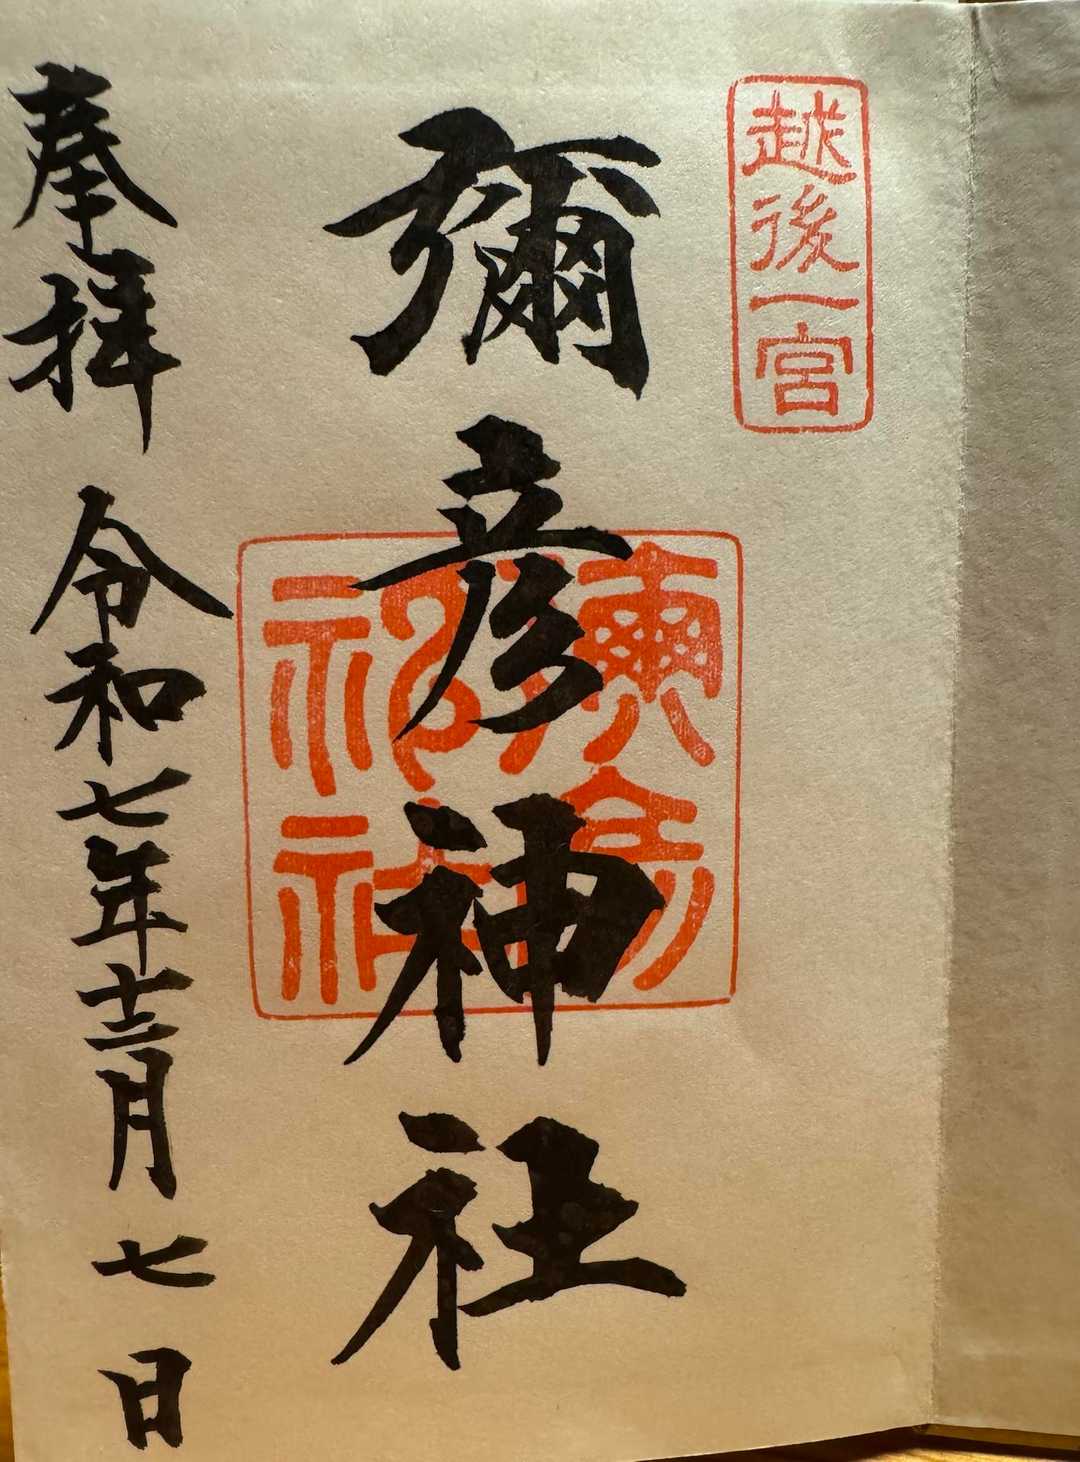 越後一宮
彌彦神社
奉拝
令和七年十二月七日